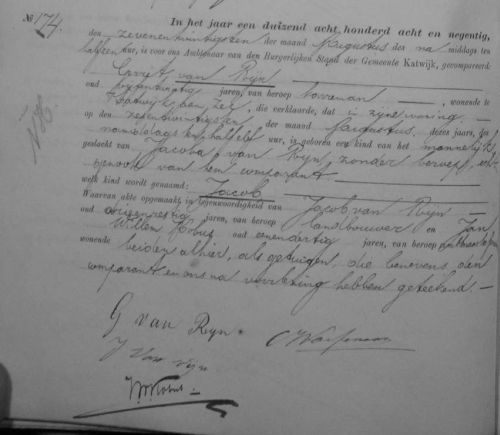 No 174.
In het jaar een duizend acht honderd acht en negentig,
den zevenentwintigsten der maand Augustus des na middags ten
half zes ure, is voor ons Ambtenaar van den Burgerlijken Stand der Gemeente Katwijk, gecompareerd:
Govert van Rijn, wonende te
oud jaren, van beroep
Katwijk aan Zee, die verklaarde, dat in zijne woning
op den zevenentwintigsten der maand Augustus, dezes jaars, des
namiddags ten half uur, is geboren een kind van het mannelijk
geslacht van Jacoba van Rijn, zonder beroep,
van den comparant
welk kind wordt genaamd: Jacob
Waarvan akte opgemaakt in tegenwoordigheid van Jacob van Rijn
oud jaren, van beroep landbouwer en Jan
Willem Kobus oud eenendertig jaren, van beroep
wonende beiden alhier, als getuigen, die benevens den
comparant en ons na voorlezing hebben geteekend.
G van Ryn
J van rijn